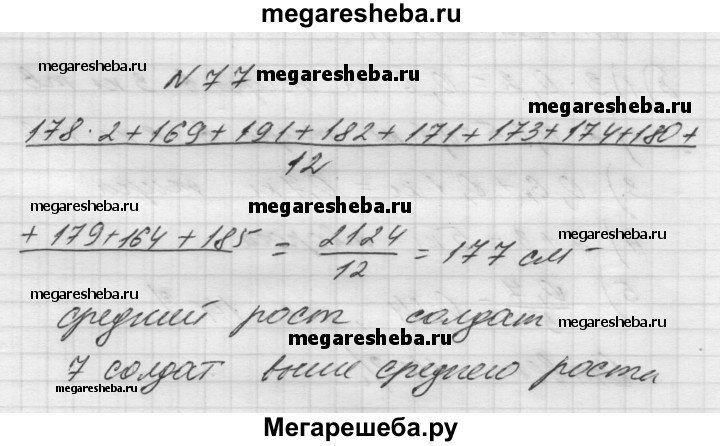 megaresheba.ru
megaresheba.ru
N 77 megaresheba.ru
megaresheba.ru
178·2+169+191+182+171+173+174+180+
12
megaresheba.ru
megaresheba.ru
+179+164+185 = 2124/12 = 177 см –
megaresheba.ru
megaresheba.ru
средний рост солдат
megaresheba.ru
7 солдат выше среднего роста
megaresheba.ru
megaresheba.ru
Мегарешеба.ру